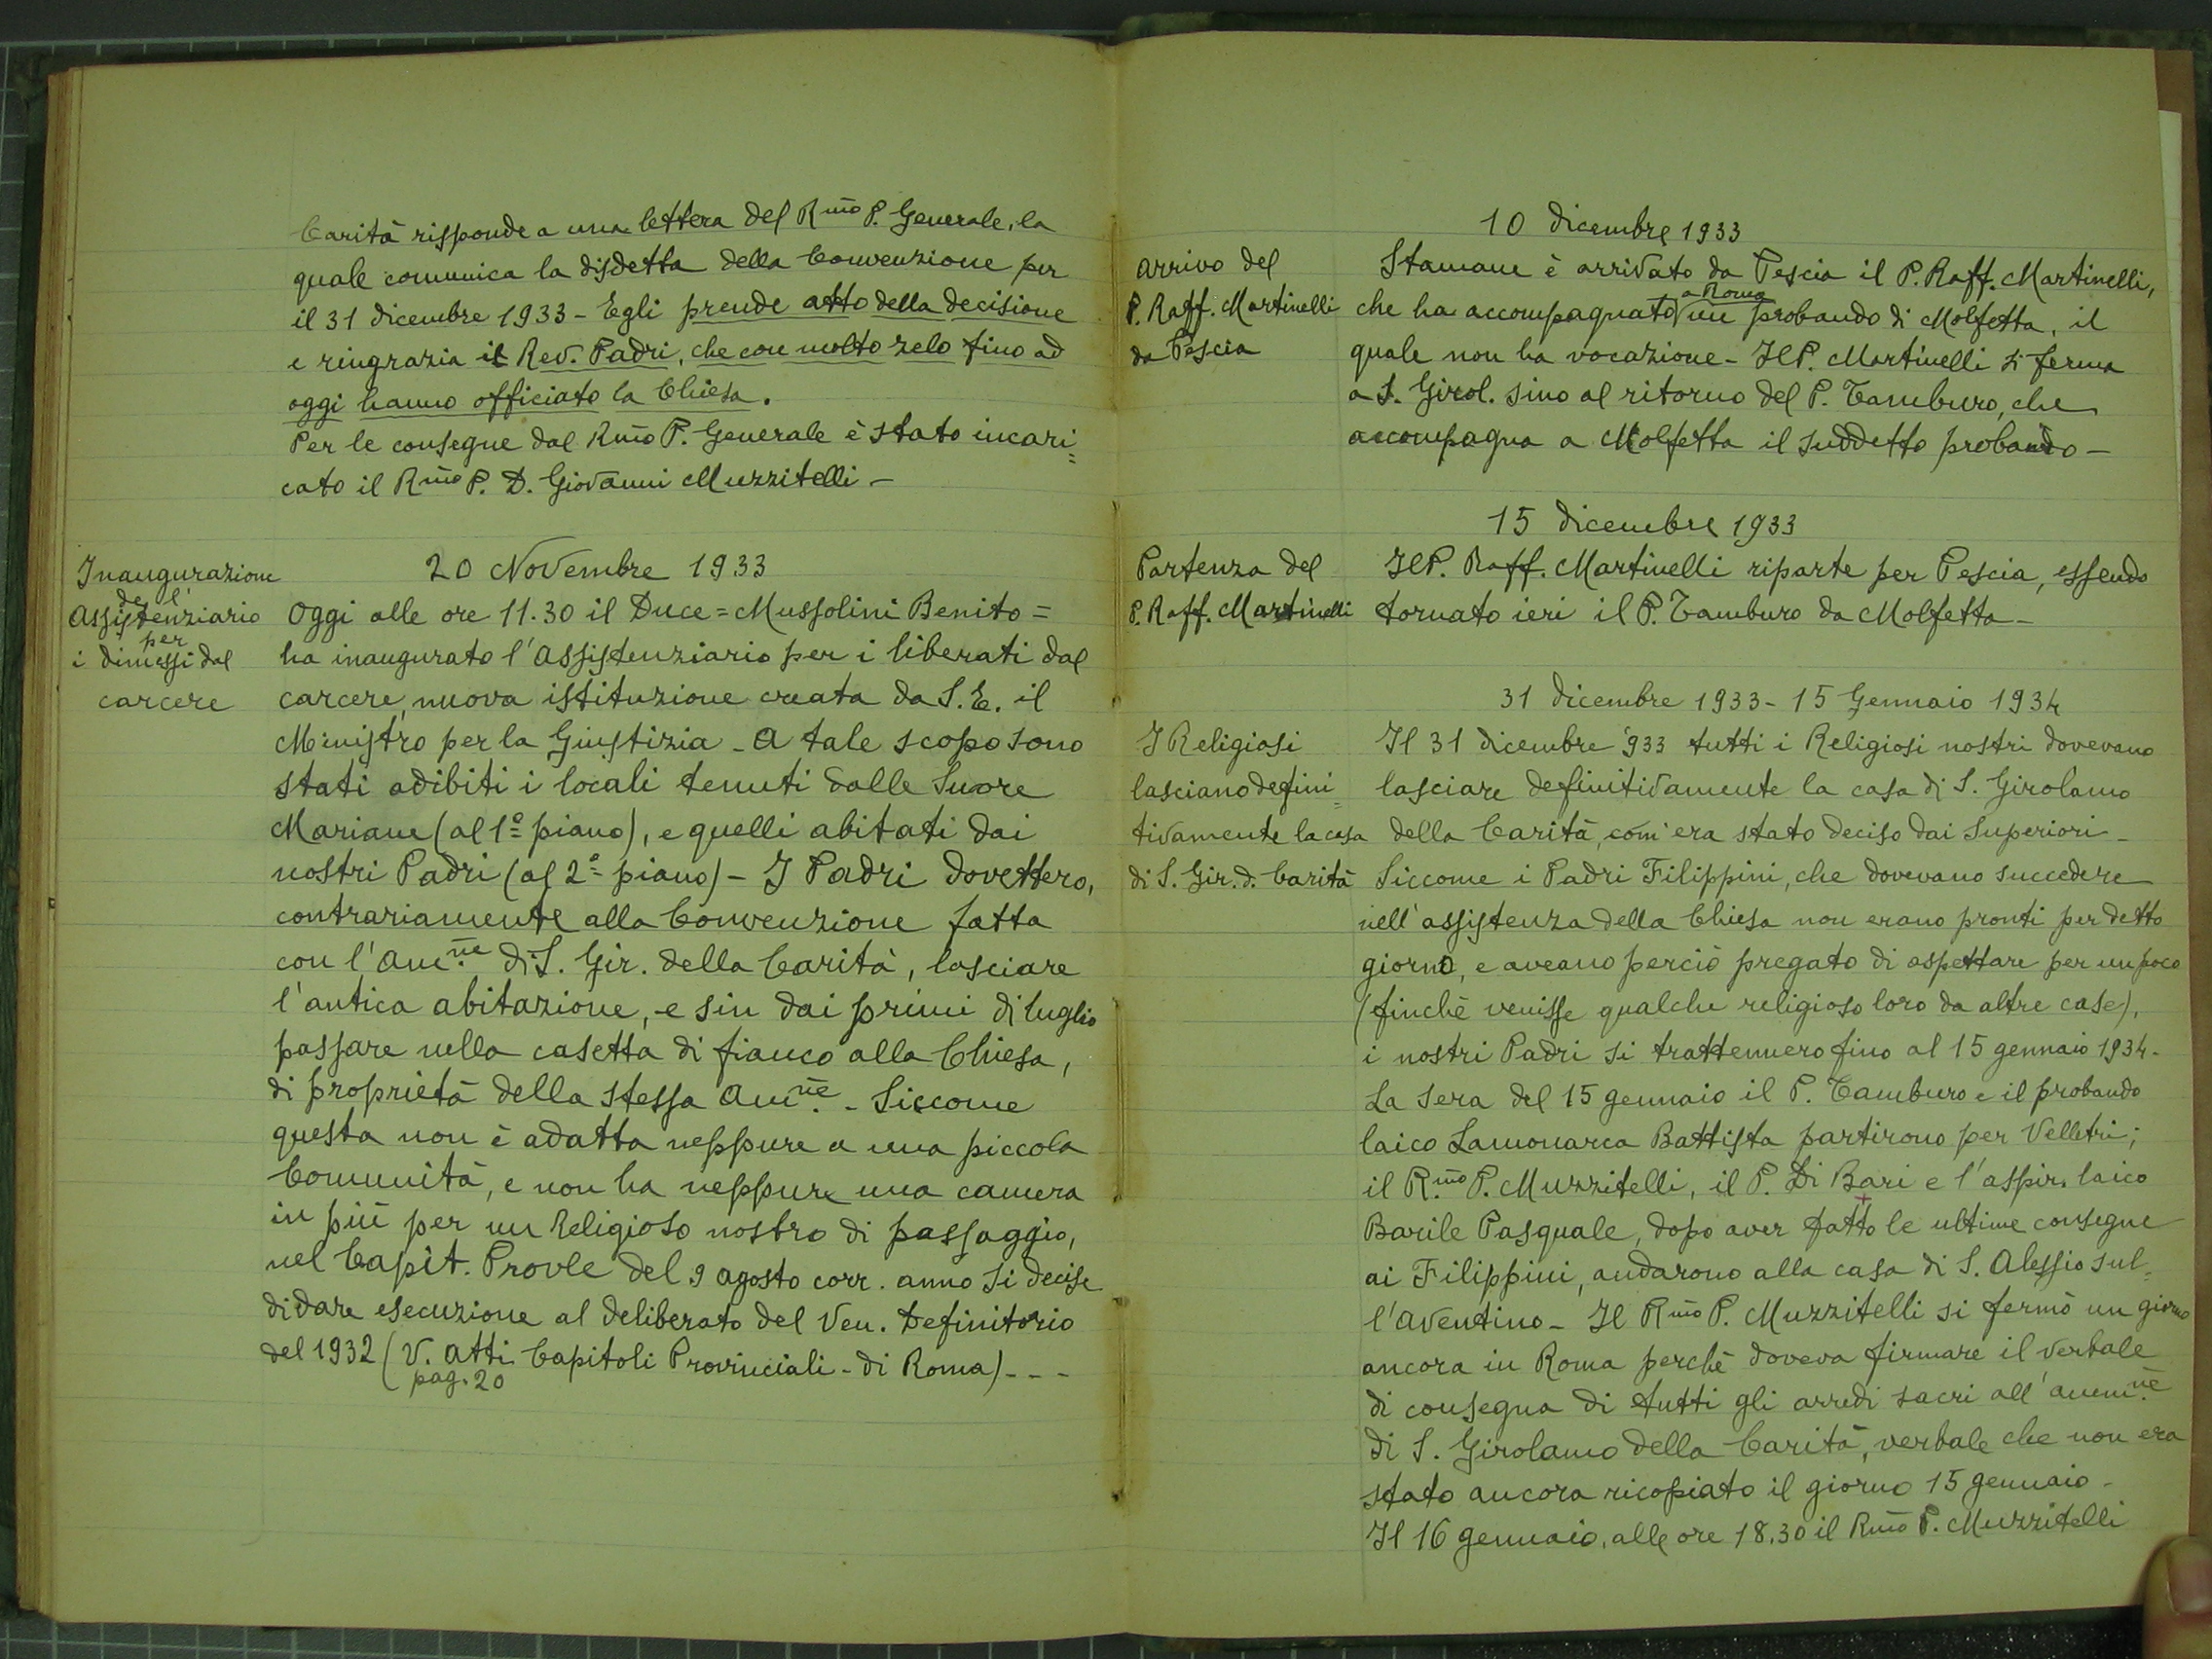 Carità risponde a una lettera del Rmo P. Generale, la
quale comunica la disdetta della Convenzione per
il 31 dicembre 1933 - Egli prende atto della decisione
e ringrazia il Rev. Padri, che con molto zelo fino ad
oggi hanno officiato la Chiesa.
Per le consegne dal Rmo P. Generale è stato incari=
cato il Rmo P. D. Giovanni Muzzitelli -
Inaugurazione
dell'
Assistenziario
per
i dimessi dal
carcere
20 Novembre 1933
Oggi alle ore 11.30 il Duce = Mussolini Benito =
ha inaugurato l'Assistenziario per i liberati dal
carcere, nuova istituzione creata da S. E. il
Ministro per la Giustizia - A tale scopo sono
stati adibiti i locali tenuti dalle Suore
Mariane (al 1º piano), e quelli abitati dai
nostri Padri (al 2º piano) - I Padri dovettero,
contrariamente alla Convenzione fatta
con l'Amne di S. Gir. della Carità, lasciare
l'antica abitazione, e sin dai primi di luglio
passare nella casetta di fianco alla Chiesa,
di proprietà della stessa Amne. - Siccome
questa non è adatta neppure a una piccola
Comunità, e non ha neppure una camera
in più per un Religioso nostro di passaggio,
nel Capit. Provle del 9 agosto corr. anno si decise
di dare esecuzione al deliberato del Ven. Definitorio
del 1932 (V. Atti Capitoli Provinciali - di Roma) - - -
pag. 20
10 dicembre 1933
Arrivo del
P. Raff. Martinelli
da Pescia
Stamane è arrivato da Pescia il P. Raff. Martinelli,
che ha accompagnato a Roma un probando di Molfetta, il
quale non ha vocazione - Il P. Martinelli si ferma
a S. Girol. sino al ritorno del P. Tamburo, che
accompagna a Molfetta il suddetto probando -
15 dicembre 1933
Partenza del
P. Raff. Martinelli
Il P. Raff. Martinelli riparte per Pescia, essendo
tornato ieri il P. Tamburo da Molfetta -
31 dicembre 1933 - 15 Gennaio 1934
I Religiosi
lasciano defini=
tivamente la casa
di S. Gir. d. Carità
Il 31 dicembre '933 tutti i Religiosi nostri dovevano
lasciare definitivamente la casa di S. Girolamo
della Carità, com'era stato deciso dai Superiori -
Siccome i Padri Filippini, che dovevano succedere
nell'assistenza della Chiesa non erano pronti per detto
giorno, e aveano perciò pregato di aspettare per un poco
(finchè venisse qualche religioso loro da altre case),
i nostri Padri si trattennero fino al 15 gennaio 1934 -
La sera del 15 gennaio il P. Tamburo e il probando
laico Lamonarca Battista partirono per Velletri;
il R.mo P. Muzzitelli, il P. Di Bari e l'aspir. laico
Barile Pasquale, dopo aver fatto le ultime consegne
ai Filippini, andarono alla casa di S. Alessio sul=
l'Aventino - Il Rmo P. Muzzitelli si fermò un giorno
ancora in Roma perchè doveva firmare il verbale
di consegna di tutti gli arredi sacri all'ammne
di S. Girolamo della Carità, verbale che non era
stato ancora ricopiato il giorno 15 gennaio -
Il 16 gennaio, alle ore 18.30 il Rmo P. Muzzitelli